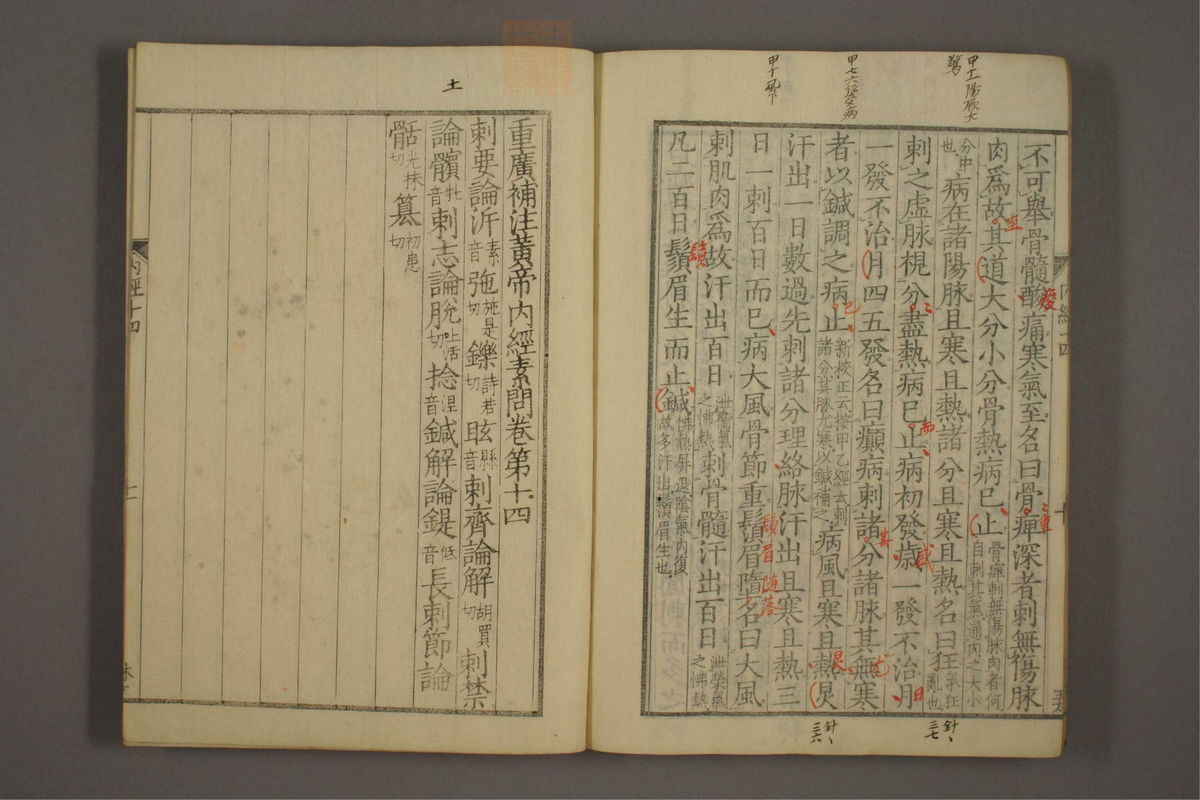 甲七六發受病
甲十風下
不可舉骨髓酸痛寒氣至名曰骨痺深者刺無傷脉
肉爲故其道大分小分骨熱病已止骨痺刺無傷脉肉者何自刺其氣通肉之大小
分中也病在諸陽脉且寒且熱諸分且寒且熱名曰狂氣狂亂也
刺之虛脉視分盡熱病已止病初發歲一發不治月
一發不治月四五發名曰癲病刺諸分諸脉其無寒
者以鍼調之病止新校正云按甲乙經云刺諸分其脉尤寒以鍼補之病風且寒且熱炅
汗出一日數過先刺諸分理絡脉汗出且寒且熱三
日一刺百日而已病大風骨節重鬚眉墮名曰大風
刺肌肉爲故汗出百日泄衞氣之怫熱刺骨髓汗出百日泄榮氣之怫熱
凡二百日鬚眉生而止鍼怫熱屏退陰氣内復故多汗出鬚眉生也
痠
至
重
而
鬚眉墮落
内經十四
土
重廣補注黃帝内經素問卷第十四
刺要論泝音素㢮施是切鑠詩若切眩音縣刺齊論解胡買切刺禁
論髕音牝刺志論脫上活切捻音涅鍼解論鍉音低長刺節論
骷光抹切篡初患切
内經十四